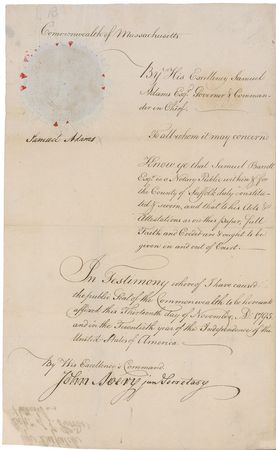 Commonwealth of Massachusetts
By His Excellency Samuel
Adams Esqr. Governor & Comman-
der in Chief.
Samuel Adams
To all whom it may concern
Know ye that Samuel Barrett
Esqr. is a Notary Public within & for
the County of Suffolk duly constitu-
ted & sworn, and that to his Acts &
Attestations as on this paper, full
Faith and Credit are & ought to be
given in and out of Court.
In Testimony whereof I have caused
the public Seal of the Commonwealth to be hereunto
affixed this Thirteenth day of November, AD. 1795
and in the Twentieth year of the Independence of the
United States of America.
By His Excellency's Command
John Avery jun Secretary